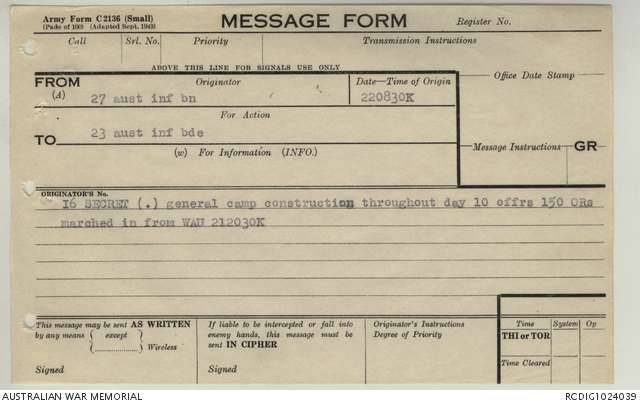 Army Form C2136 (Small)
(Pads of 100) (Adapted Sept. 1943)
MESSAGE FORM
Register No.
Call Srl. No. Priority Transmission Instructions
ABOVE THIS LINE FOR SIGNALS USE ONLY
FROM
(A)
Originator
27 aust inf bn
Date—Time of Origin
220830K
Office Date Stamp
For Action
TO
23 aust inf bde
(w) For Information (INFO.)
Message Instructions GR
ORIGINATOR'S No.
I6 SECRET (.) general camp construction throughout day 10 offrs 150 ORs
marched in from WAU 212030K
This message may be sent AS WRITTEN
by any means { except }
{ .................. } Wireless
Signed
If liable to be intercepted or fall into
enemy hands, this message must be
sent IN CIPHER
Signed
Originator's Instructions
Degree of Priority
Time System Op
THI or TOR
Time Cleared
AUSTRALIAN WAR MEMORIAL
RCDIG1024039